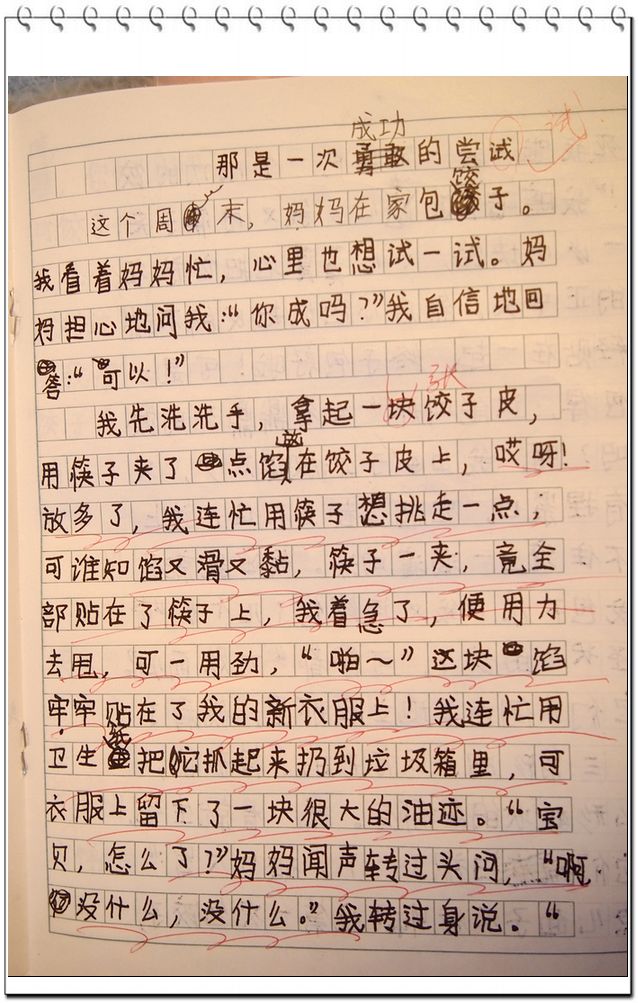 试
成功
那是一次勇敢的尝试
饺
这个周末，妈妈在家包子。
我看着妈妈忙，心里也想试一试。妈
妈担心地问我：“你成吗？”我自信地回
答：“可以！”
张
我先洗洗手，拿起一块饺子皮，
用筷子夹了点馅放在饺子皮上，哎呀！
放多了，我连忙用筷子想挑走一点，
可谁知馅又滑又黏，筷子一夹，竟全
部贴在了筷子上，我着急了，便用力
去甩，可一用劲，“啪～”这块馅
牢牢贴在了我的新衣服上！我连忙用
卫生纸把它抓起来扔到垃圾箱里，可
衣服上留下了一块很大的油迹。“宝
贝，怎么了？”妈妈闻声转过头问，“啊
没什么，没什么。”我转过身说。“